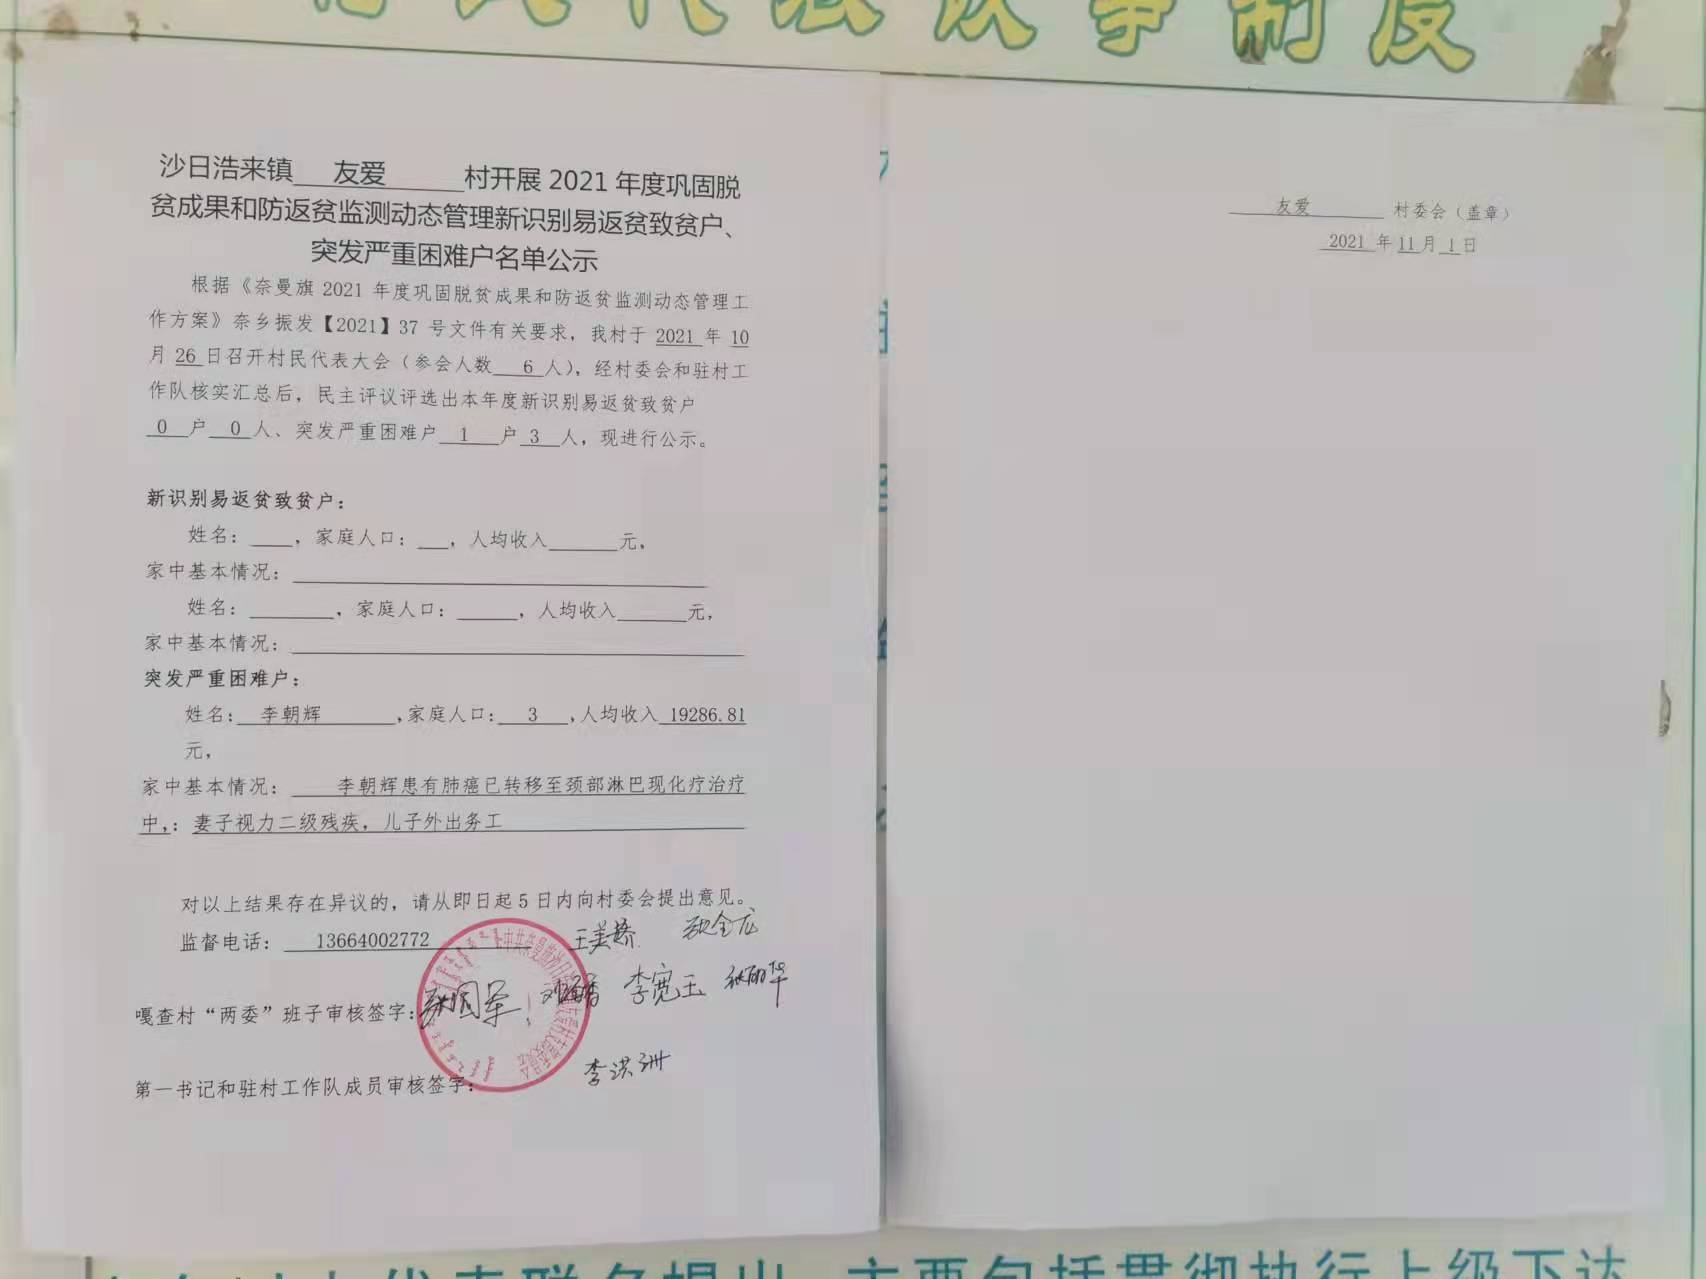 村民代表议事制度
沙日浩来镇 友爱 村开展 2021 年度巩固脱
贫成果和防返贫监测动态管理新识别易返贫致贫户、
突发严重困难户名单公示
根据《奈曼旗 2021 年度巩固脱贫成果和防返贫监测动态管理工
作方案》奈乡振发【2021】37 号文件有关要求，我村于 2021 年 10
月 26 日召开村民代表大会（参会人数 6 人），经村委会和驻村工
作队核实汇总后，民主评议评选出本年度新识别易返贫致贫户
0 户 0 人、突发严重困难户 1 户 3 人，现进行公示。
新识别易返贫致贫户：
姓名：____，家庭人口：___，人均收入______元，
家中基本情况：
姓名：________，家庭人口：______，人均收入______元，
家中基本情况：
突发严重困难户：
姓名： 李朝辉 ，家庭人口： 3 ，人均收入 19286.81
元，
家中基本情况： 李朝辉患有肺癌已转移至颈部淋巴现化疗治疗
中，：妻子视力二级残疾，儿子外出务工
对以上结果存在异议的，请从即日起 5 日内向村委会提出意见。
监督电话： 13664002772
王美娇
嘎查村“两委”班子审核签字：
李宽玉
第一书记和驻村工作队成员审核签字：
李洪洲
友爱 村委会（盖章）
2021 年 11 月 1 日
代表联名提出，主要包括贯彻执行上级下达